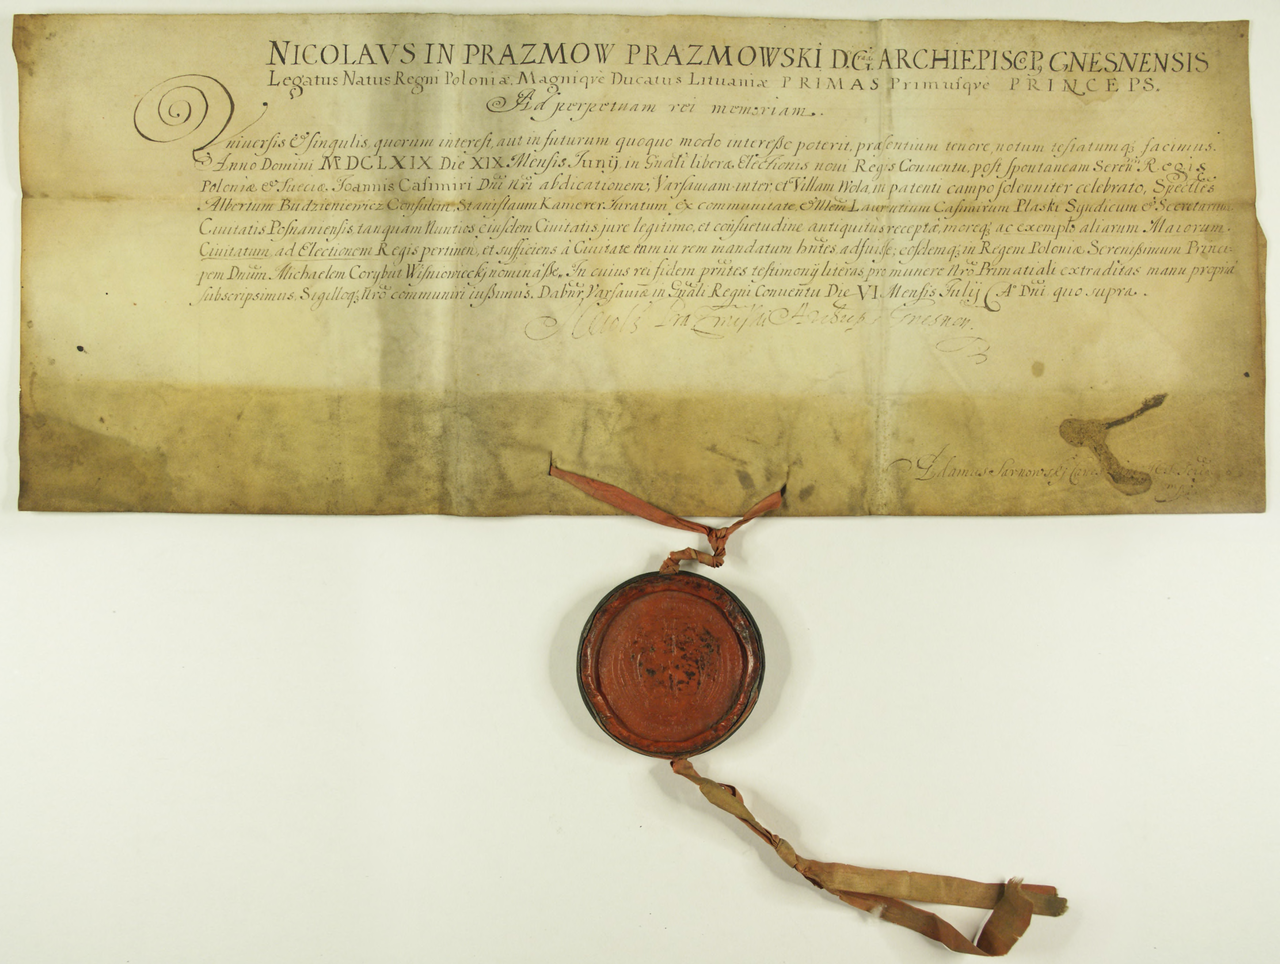 NICOLAVS IN PRAZMOW PRAZMOWSKI D.G. ARCHIEPISCP, GNESNENSIS
Legatus Natus Regni Poloniæ, Magniqve Ducatus Lituaniæ PRIMAS Primusqve PRINCEPS.
Ad perpetuam rei memoriam.
Vniversis & singulis, quorum interest, aut in futurum quoquo modo interesse poterit, præsentium tenore, notum testatumq; facimus.
Anno Domini MDCLXIX Die XIX Mensis Junij in Gnãli liberæ Electionis novi Regis Conventu, post spontaneam Seren Regis
Poloniæ & Sueciæ, Joannis Casimiri Dñi Nri abdicationem, Varsaviam inter et Villam Wola, in patenti campo solenniter celebrato,
Albertum Budzieniewicz Consulem, Stanislaum Kamerer Juratum, ex communitate, & Laurentium Casimirum Plaski Syndicum & Secretarium
Civitatis Posnaniensis, tanquam Nuntios eiusdem Civitatis, jure legitimo, et consuetudine antiquitus recepta, moreq; ac exemplo aliarum Maiorum
Civitatum, ad Electionem Regis pertinen, et sufficiens à Civitate tam in rem mandatum hñtes, adfuisse, eosdemq; in Regem Poloniæ Serenissimum Princi-
pem Dñum, Michaelem Corybut Wisniowieckj nominasse. In cuius rei fidem pñtes testimonij literas, pro munere Nro Primatiali extraditas manu propria
subscripsimus, Sigilloq; Nro communiri iussimus. Dabñr, Varsaviæ in Gnãli Regni Conventu Die VI Mensis Julij A Dñi quo supra.
Adamus Sarnowski